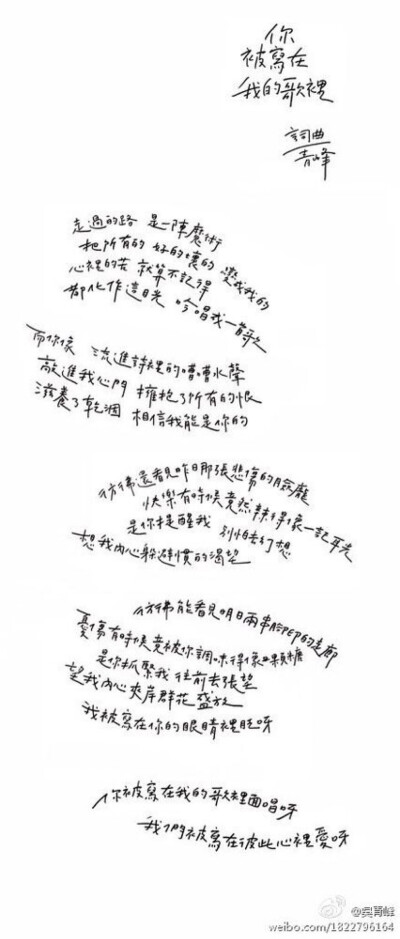 你
被寫在
我的歌裡
詞曲
青峰
走過的路 是一陣魔術
把所有的 好的壞的 變成我的
心裡的苦 就算不記得
都化作這目光 吟唱成一首歌
而你像 流進詩裡的嘈嘈水聲
敲進我心門 擁抱了所有的恨
滋養了乾涸 相信我能是你的
彷彿還看見昨日那張悲傷的臉龐
快樂有時候竟然辣得像一記耳光
是你提醒我 別怕去幻想
想我內心躲避慣的渴望
彷彿能看見明日兩串腳印的走廊
憂傷有時候竟被你調味得像顆糖
是你抓緊我 往前去張望
望我內心夾岸群花盛放
我被寫在你的眼睛裡眨呀
你被寫在我的歌裡面唱呀
我們被寫在彼此心裡愛呀
@吳青峰
weibo.com/1822796164